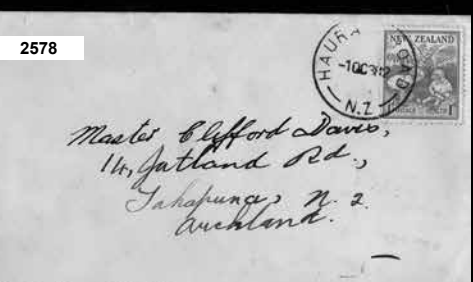 2578
HAURA ROAD
-1 OC
N.Z
NEW ZEALAND
HEALTH 1D
Master Clifford Davis,
14, Jutland Rd.,
Takapuna, N. 2.
Auckland.